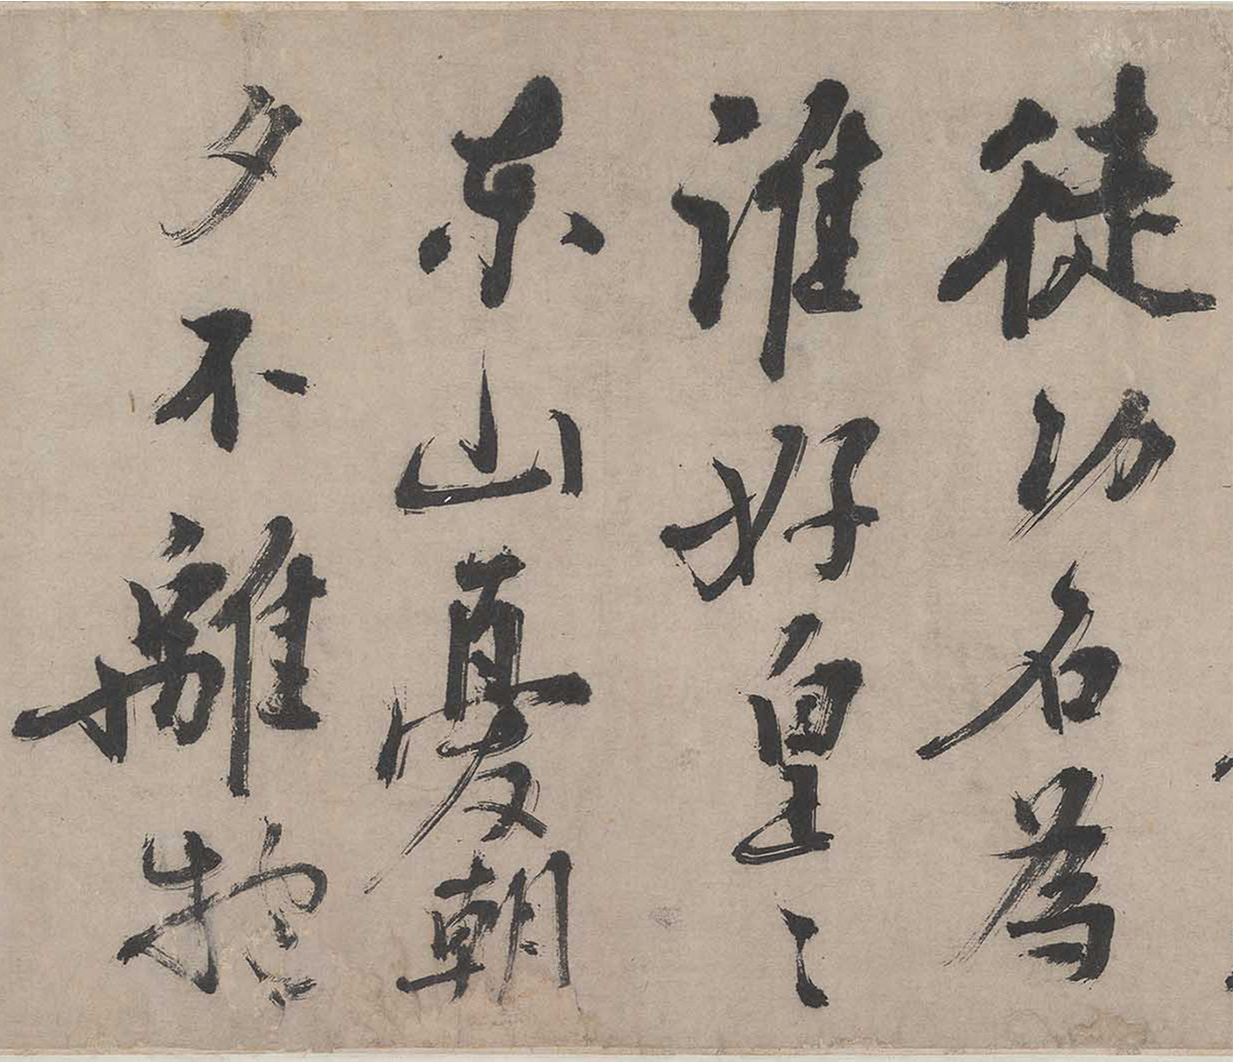 徒功名為
誰好皇〻
東山憂朝
夕不離抱